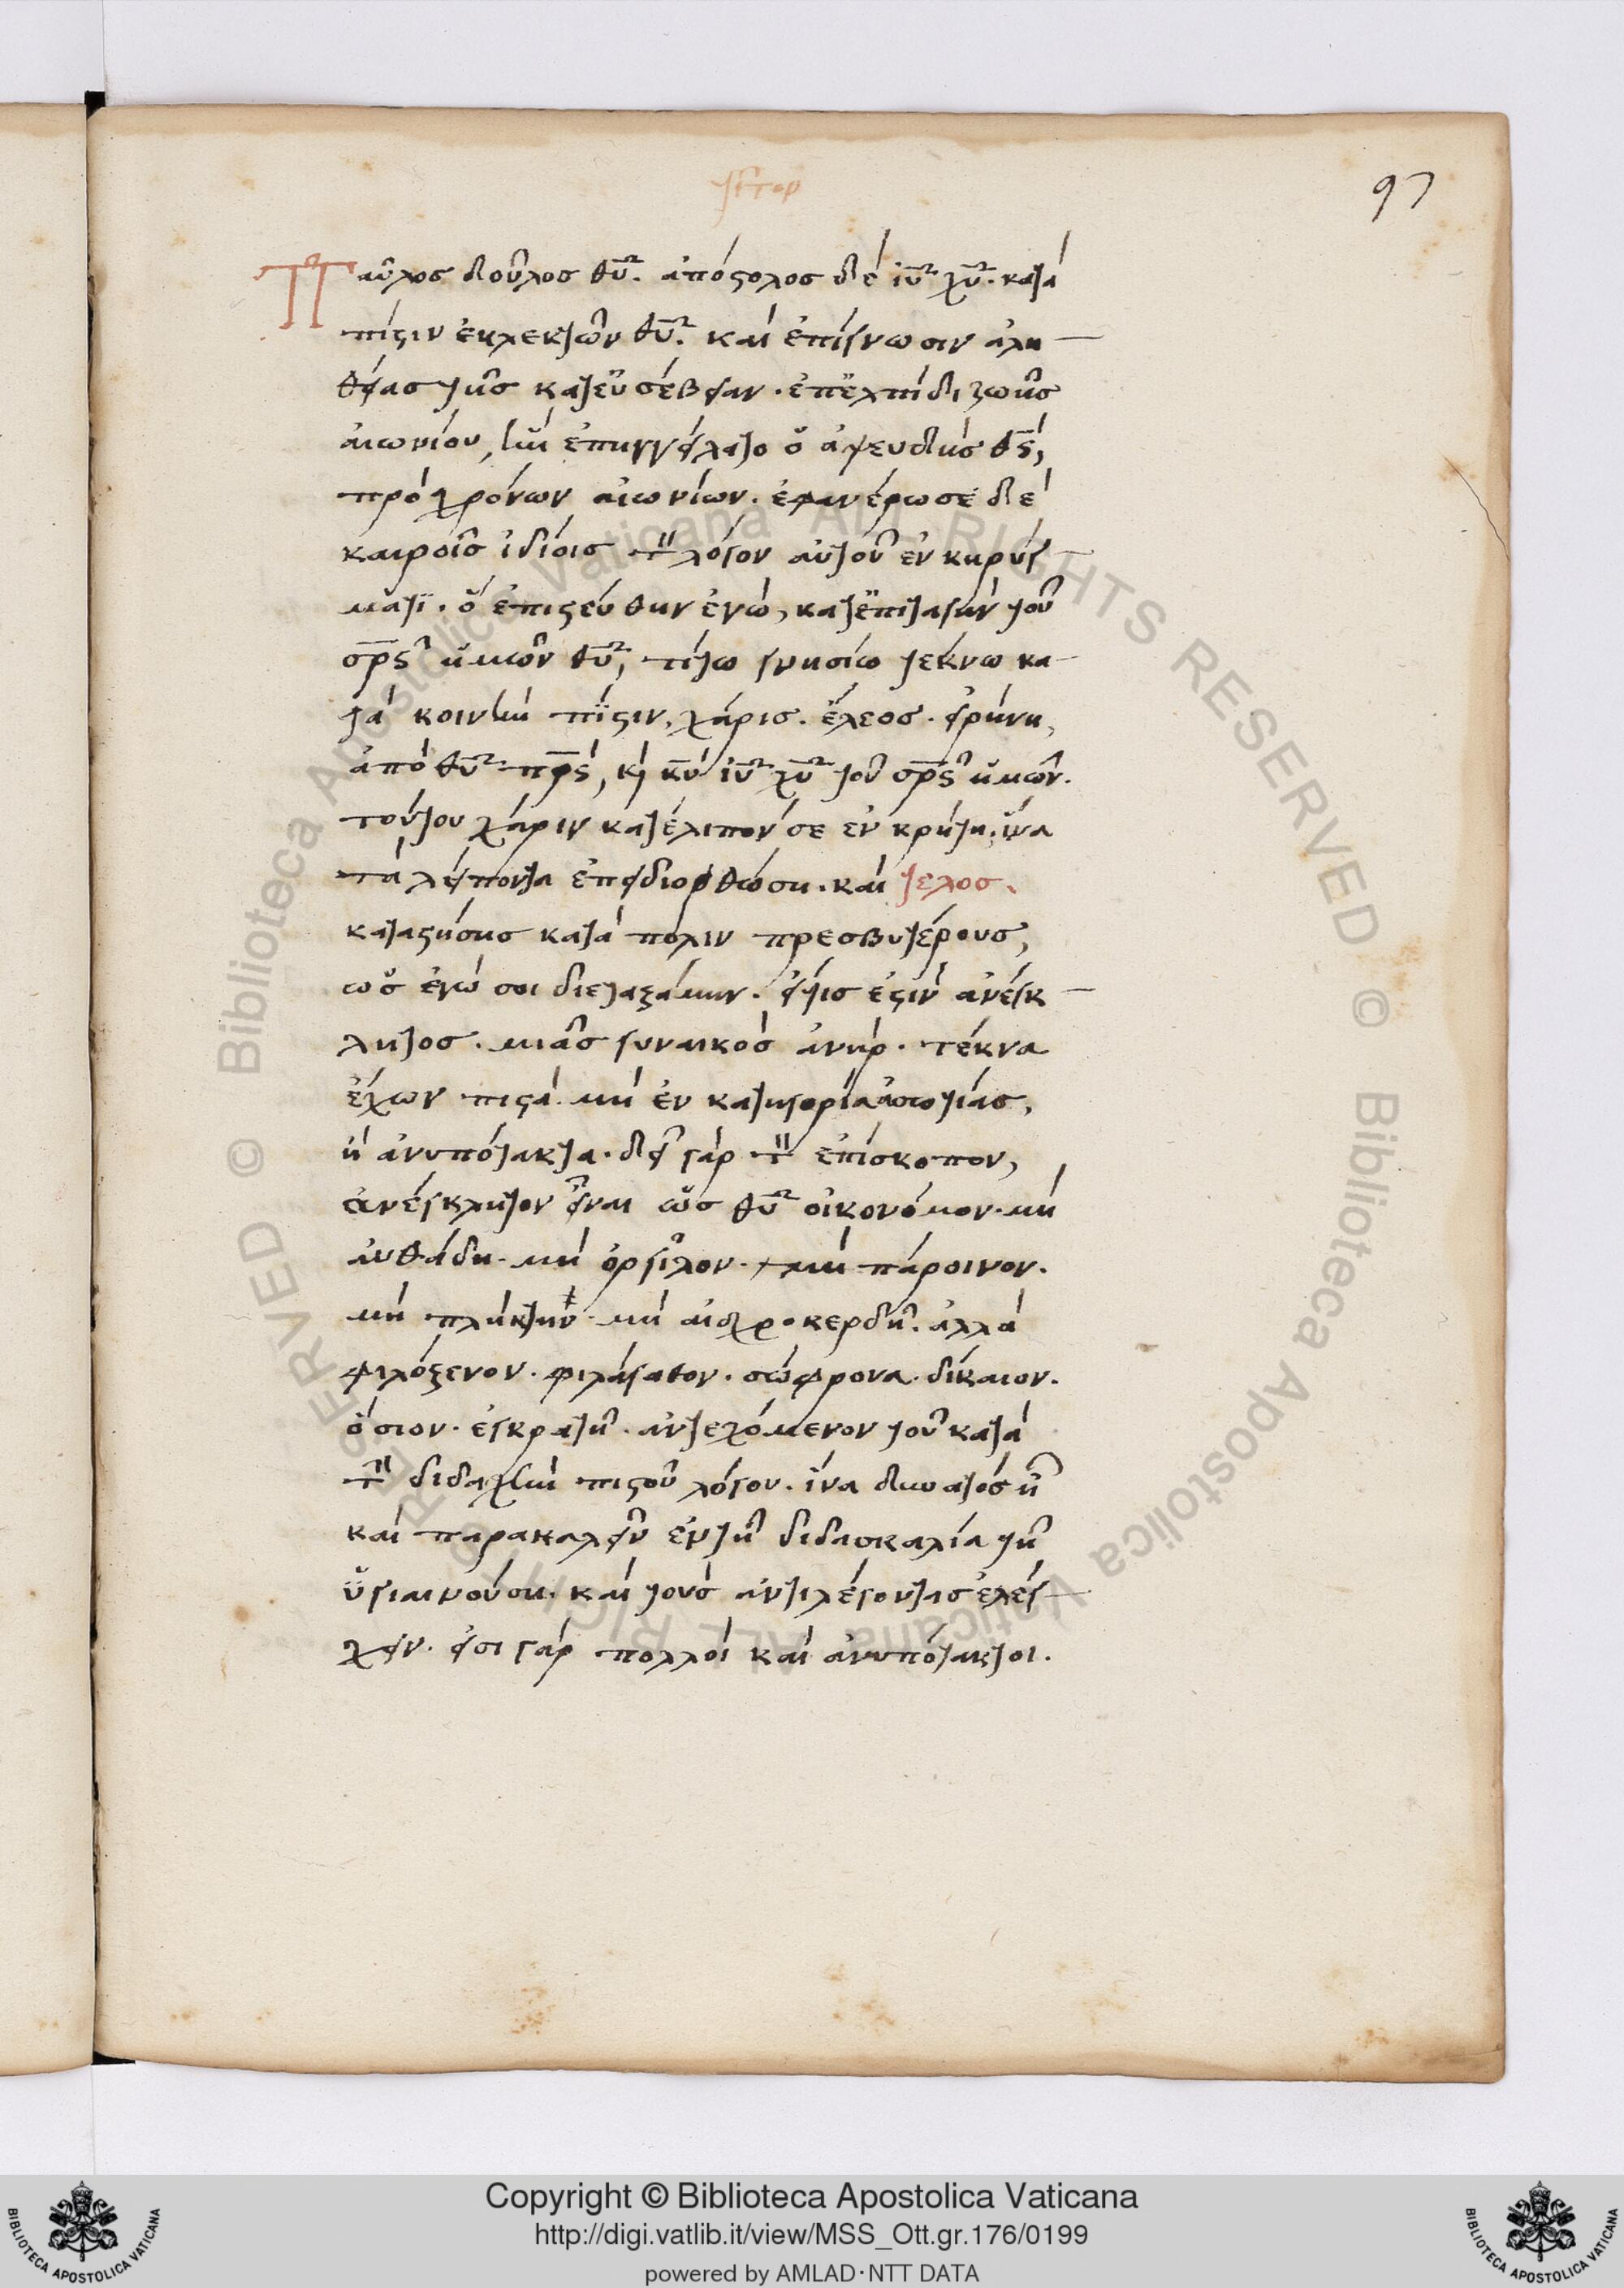 97
Παῦλος δοῦλος θυ̅. ἀπόστολος δὲ ιυ̅ χυ̅. κατὰ
πίστιν ἐκλεκτῶν θυ̅. καὶ ἐπίγνωσιν ἀλη
θείας τῆς κατευσέβειαν. ἐπελπίδι ζωῆς
αἰωνίου, ἣν ἐπηγγείλατο ὁ ἀψευδὴς θς̅,
πρὸ χρόνων αἰωνίων. ἐφανέρωσε δὲ
καιροῖς ἰδίοις τὸν λόγον αὐτοῦ ἐν κηρύγ
ματι. ὃ ἐπιστεύθην ἐγὼ, κατἐπιταγὴν τοῦ
σρ̅ς ἡμῶν θυ̅, τίτω γνησίω τέκνω κα
τὰ κοινὴν πίστιν, χάρις. ἔλεος. εἰρήνη,
ἀπὸ θυ̅ πρς̅, κ κυ̅ ιυ̅ χυ̅ τοῦ σρ̅ς ἡμῶν.
τούτου χάριν κατέλιπόν σε ἐν κρήτη, ἵνα
τὰ λείποντα ἐπιδιορθώση. καὶ τελος.
καταστήσης κατὰ πόλιν πρεσβυτέρους,
ὡς ἐγώ σοι διεταξάμην. εἴτις ἐστὶν ἀνέγκ
λητος. μιᾶς γυναικὸς ἀνήρ. τέκνα
ἔχων πιστὰ. μὴ ἐν κατηγορία ἀσωτίας,
ἢ ἀνυπότακτα. δεῖ γὰρ τὸν ἐπίσκοπον,
ἀνέγκλητον εἶναι ὡς θυ̅ οἰκονόμον. μὴ
αυθάδη. μὴ ὀργίλον. μὴ πάροινον.
μὴ πλήκτην. μὴ αἰσχροκερδῆ. ἀλλὰ
φιλόξενον. φιλάγαθον. σώφρονα. δίκαιον.
ὅσιον. ἐγκρατῆ. ἀντεχόμενον τοῦ κατὰ
τὴν διδαχὴν πιστοῦ λόγου. ἵνα δυνατὸς ἦ
καὶ παρακαλεῖν ἐν τῆ διδασκαλία τῆ
ὑγιαινούση. καὶ τοὺς ἀντιλέγοντας ἐλέγ
χειν. εἰσι γὰρ πολλοὶ καὶ ἀνυπότακτοι.
Copyright © Biblioteca Apostolica Vaticana
http://digi.vatlib.it/view/MSS_Ott.gr.176/0199
powered by AMLAD·NTT DATA